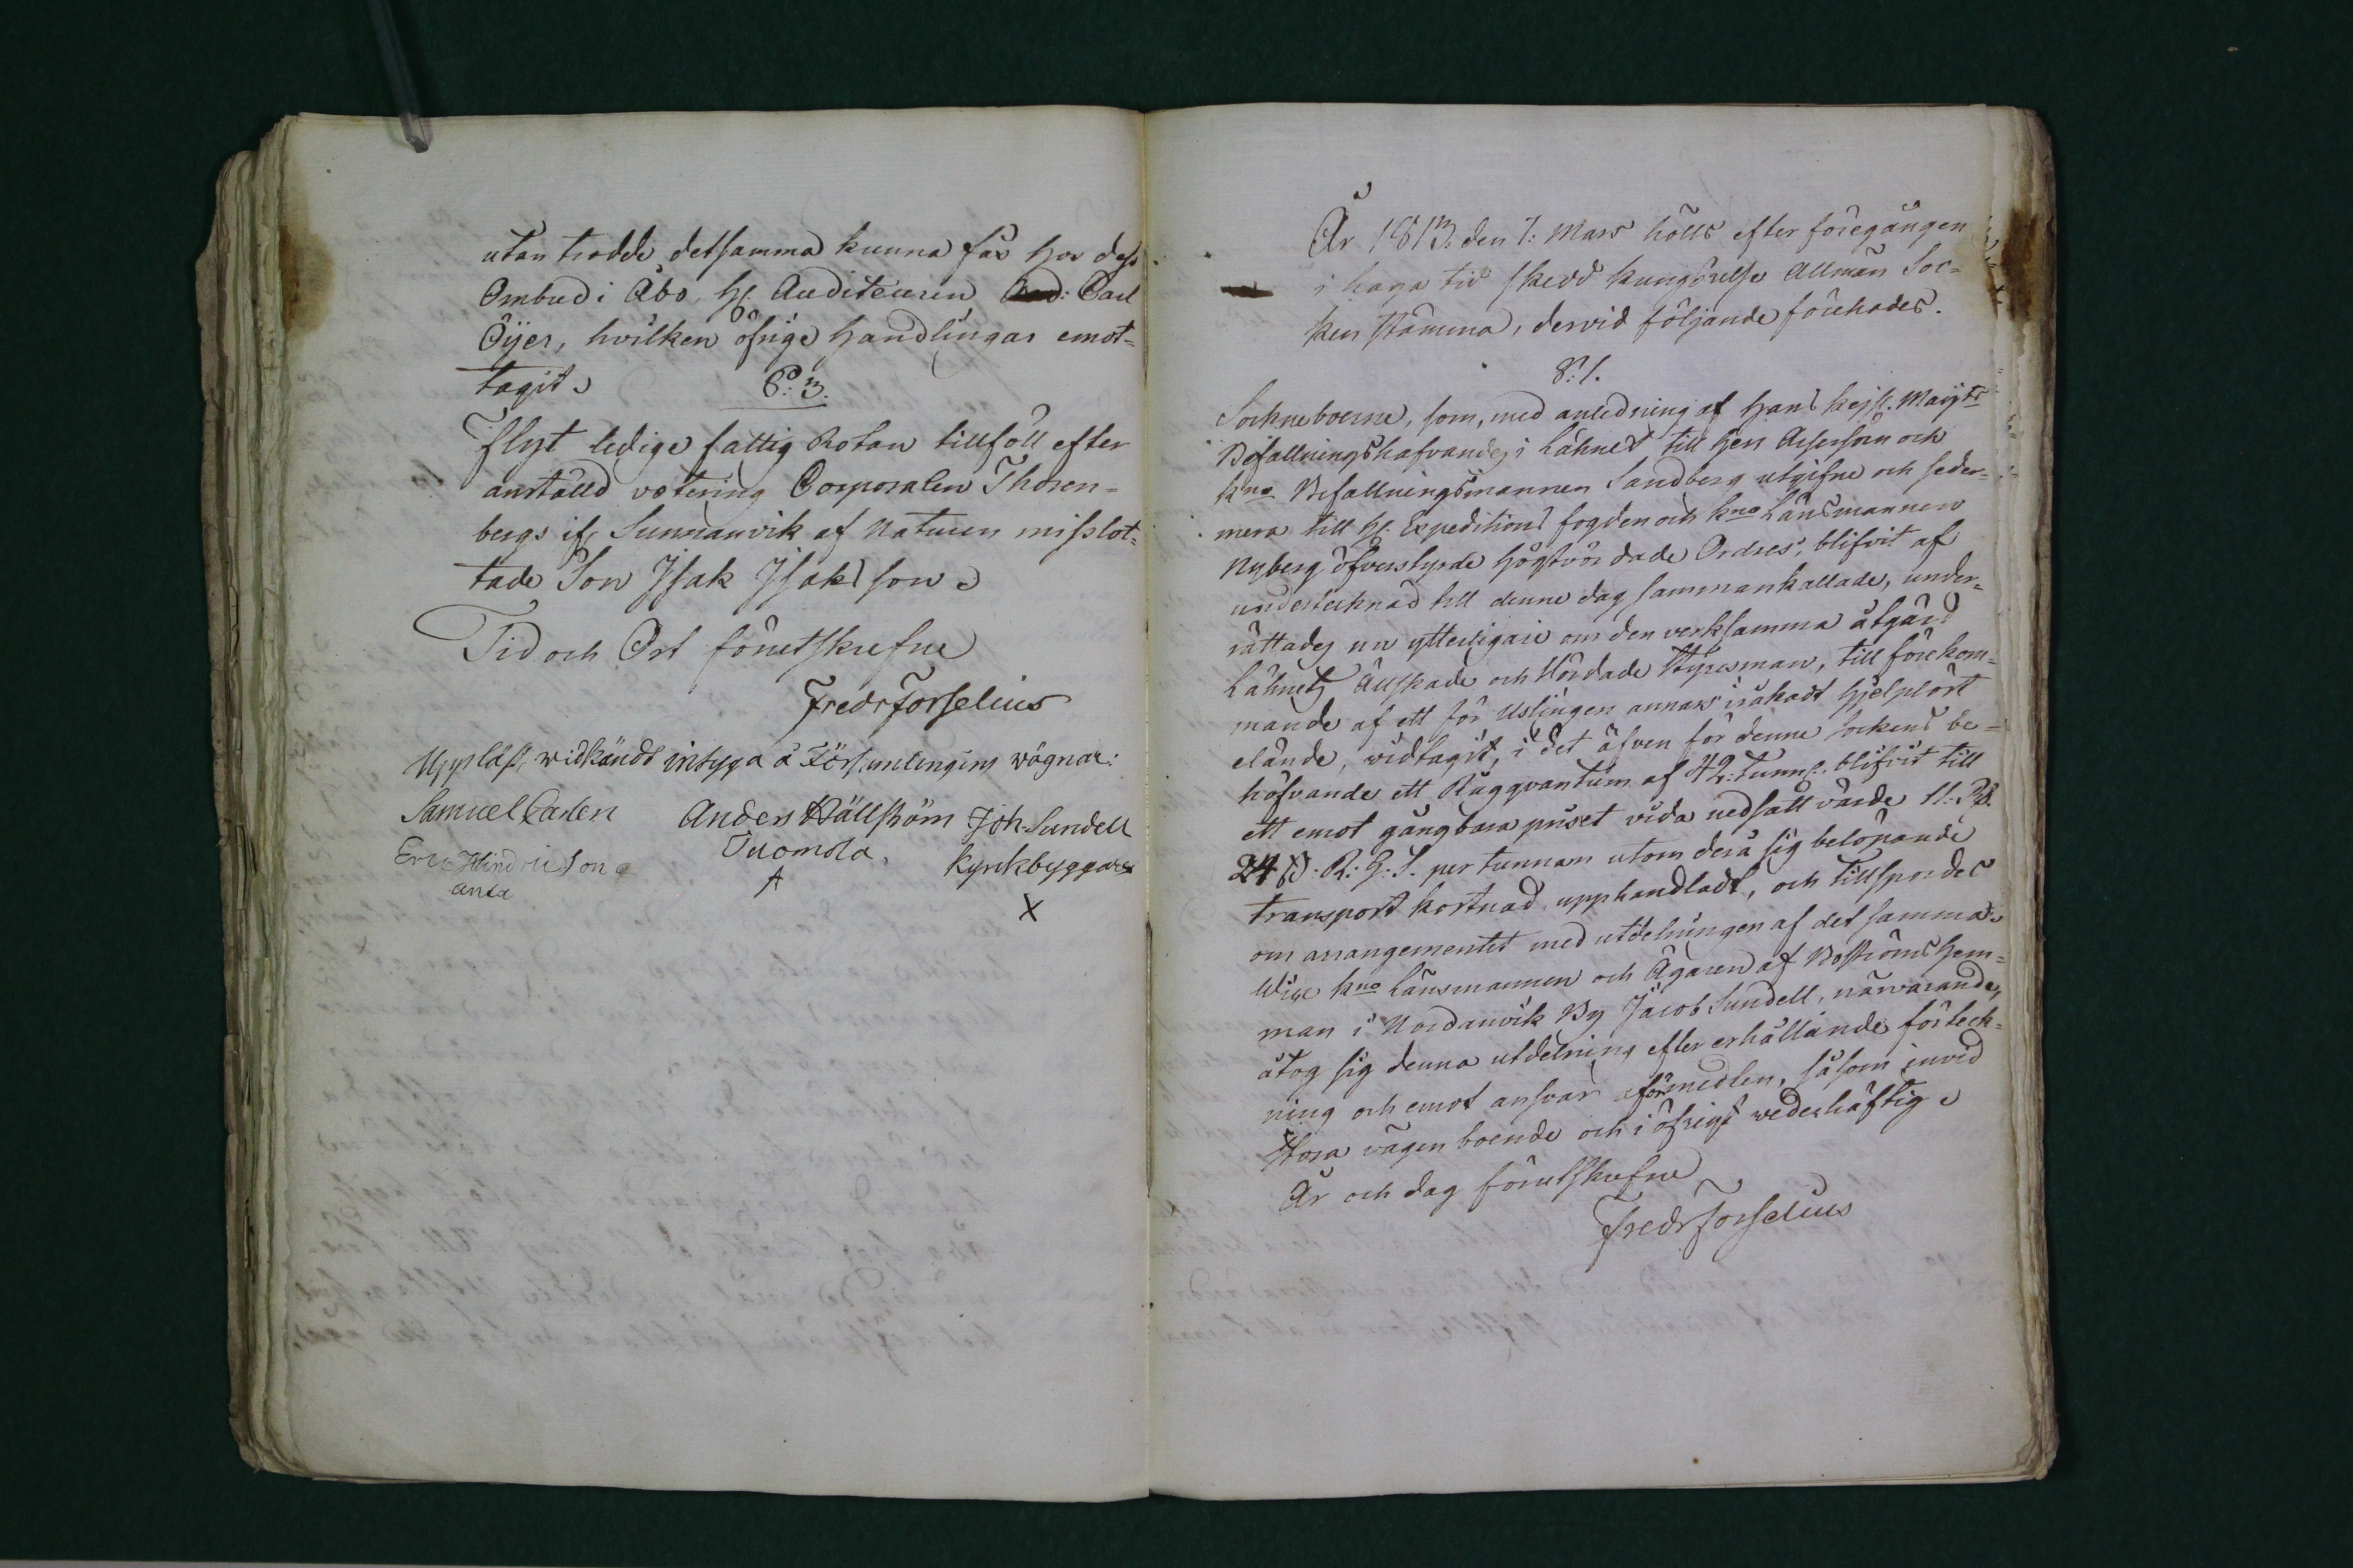 utan trodde detsamma kunna fås hos dess
Ombud i Åbo, Hr Auditeuren Carl
Öÿer, hvilken öfrige Handlingar emot-
tagit.
§: 3.
Flyt ledige fattig Rotan tillföll efter
anställd votering Corporalen Thoren-
bergs ifr Sunnanvik af Naturen misslot-
tade Son Isak Isaksson
Tid och Ort förutskrefne
Fredr Forselius
Uppläst, widkändt intyga å Församlingens wägnar:
Samuel Carlen Anders Hällström Joh. Sundell
Eric Hindricson Tuomola. Kyrkbyggare
anta
X
År 1813. den 7. Mars hölls efter föregången
i haga tid skedd kungörelse Allmän Soc-
ken Stämma, dervid följande förehades.
§: 1.
Sockneboerne, som, med anledning af Hans Kejs. Majts
Befallningshafvandes i Lähnet till Herr Assessorn och
kno Befallningsmannen Sandberg utgifne och seder-
mera till Hr Expeditions fogden och kno Länsmannen
Nyberg öfverstyrde högtvördade Ordres, blifvit af
undertecknad till denne dag sammankallade, under-
rättades nu ytterligare om den verksamma åtgärd
Lähnets Älskade och Vördade Styresman, till förekom-
mande af ett för Uslingen annars orsakadt hjelplöst
elände, widtagit, i det äfven för denne Sockens be-
höfvande ett Rågqvantum af 42. Tunnr blifvit till
ett emot gångbara priset vida nedsatt värde 11. Rd.
24 s. R: G: S. per tunnan utom derå sig belöpande
transport kostnad upphandladt, och tillspordes
om arrangementet med utdelningen af det samma.
Vice kno Länsmannen och Ägaren af Boströms Hem-
man i Nordanvik By Jacob Sundell, närvarande,
åtog sig denna utdelning efter erhållande förteck-
ning och emot ansvar för medlen, såsom invid
Stora vägen boende och i öfrigt wederhäftig
År och dag förutskrefne
Fredr Forselius